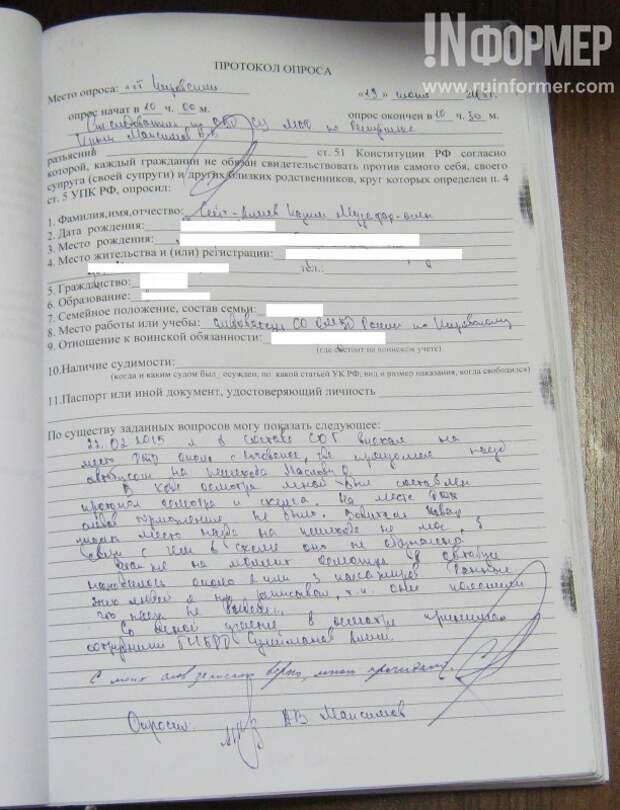 !NФОРМЕР
www.ruinformer.com
ПРОТОКОЛ ОПРОСА
Место опроса: пгт Кировский
опрос начат в 10 ч. 00 м.
опрос окончен в 10 ч. 30 м.
Крым Максимов А.В.
разъяснив ст. 51 Конституции РФ согласно
которой, каждый гражданин не обязан свидетельствовать против самого себя, своего
супруга (своей супруги) и других близких родственников, круг которых определен п. 4
ст. 5 УПК РФ, опросил:
1. Фамилия,имя,отчество:
2. Дата рождения:
3. Место рождения:
4. Место жительства и (или) регистрации:
тел.:
5. Гражданство:
6. Образование:
7. Семейное положение, состав семьи:
8. Место работы или учебы: следователь СО ОМВД России по Кировскому
9. Отношение к воинской обязанности:
(где состоит на воинском учете)
10.Наличие судимости:
(когда и каким судом был осужден, по какой статьей УК РФ, вид и размер наказания, когда освободился)
11.Паспорт или иной документ, удостоверяющий личность
По существу заданных вопросов могу показать следующее:
22.02.2015 я в составе СОГ выехал на
место ДТП около
автобусом на пешехода
В ходе осмотра мной был составлен
протокол осмотра и схема. На месте ДТП
следов торможения не было. Водитель
место наезда на пешехода не мог, в
связи с чем в схеме оно не обозначено
Также на момент осмотра в автобусе
находилось около 2 или 3 пассажиров. Данные
этих людей я не записывал, т.к. они пояснили
что наезд не видели.
Со мной участие в осмотре принимал
сотрудник ГИБДД Сулейманов
С моих слов записано верно, мною прочитано.
Опросил: А.В. Максимов